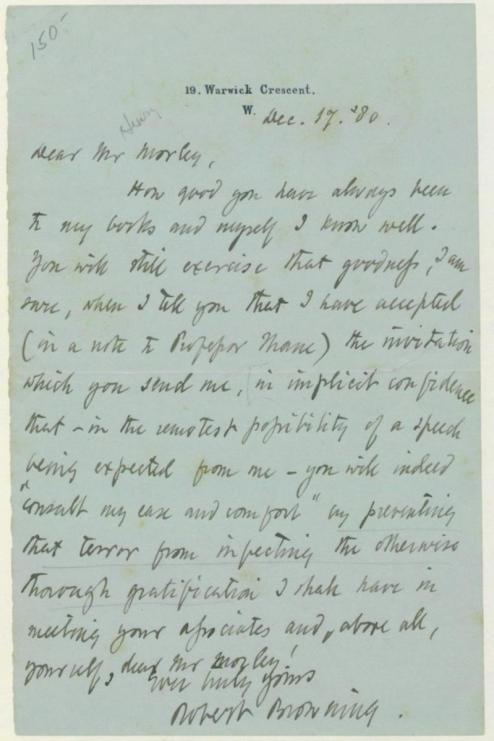 150
19, Warwick Crescent,
W.
Dec. 17. '80.
Henry
Dear Mr Morley,
How good you have always been
to my books and myself I know well.
You will still exercise that goodness, I am
sure, when I tell you that I have accepted
(in a note to Professor Thane) the invitation
which you send me, in implicit confidence
that – in the remotest possibility of a speech
being expected from me – you will indeed
"consult my ease and comfort" by preventing
that terror from infecting the otherwise
thorough gratification I shall have in
meeting your associates and, above all,
yourself, dear Mr Morley!
Ever truly yours
Robert Browning.